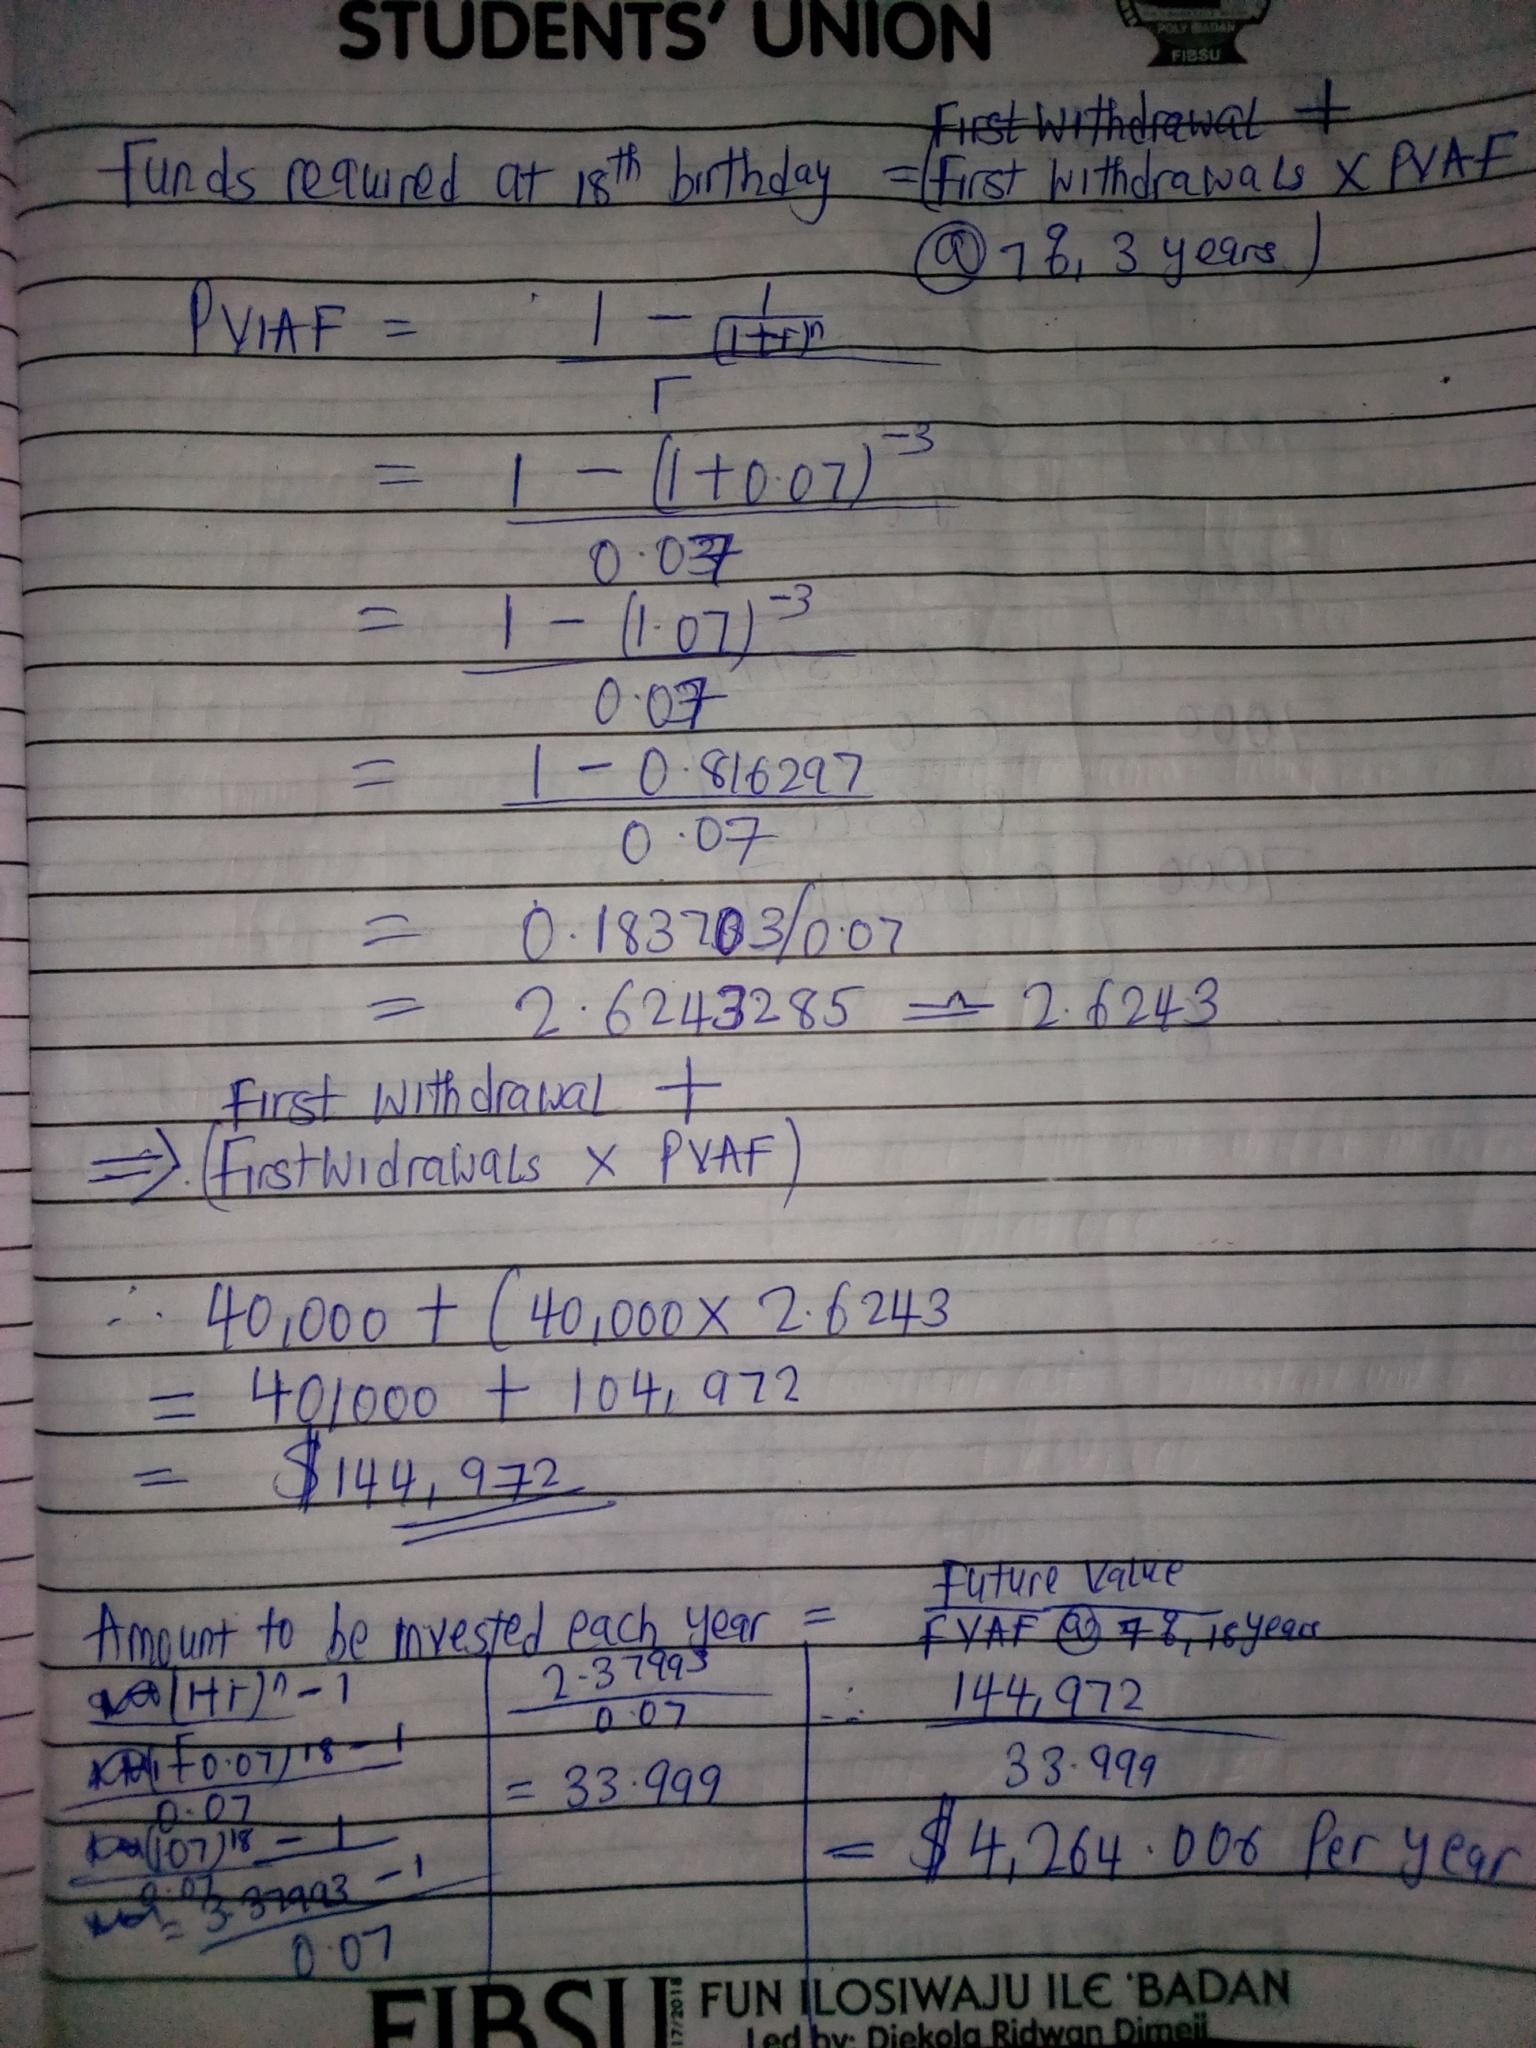 STUDENTS' UNION
POLY IBADAN
FIBSU
First Withdrawal +
Funds required at 18th birthday = (First Withdrawals X PVAF
@ 7%, 3 years)
PVIAF = 1 - 1/(1+r)^n
r
= 1 - (1+0.07)^-3
0.07
= 1 - (1.07)^-3
0.07
= 1 - 0.816297
0.07
= 0.183703/0.07
= 2.6243285 ≏ 2.6243
First Withdrawal +
⇒ (FirstWidrawals X PVAF)
∴ 40,000 + (40,000 X 2.6243
= 40,000 + 104,972
= $144,972
Amount to be invested each year = Future Value
FVAF @ 7%, 18 years
(1+r)^n - 1
(1+0.07)^18 - 1
0.07
(107)^18 - 1
0.07
= 3.37993 - 1
0.07
2.37993
0.07
= 33.999
∴ 144,972
33.999
= $4,264.006 Per year
FIBSU 17/2018 FUN ILOSIWAJU ILE 'BADAN
Led by: Diekola Ridwan Dimeji